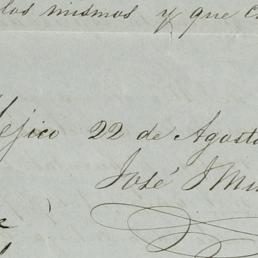 los mismos y que
Mejico 22 de Agosto
José